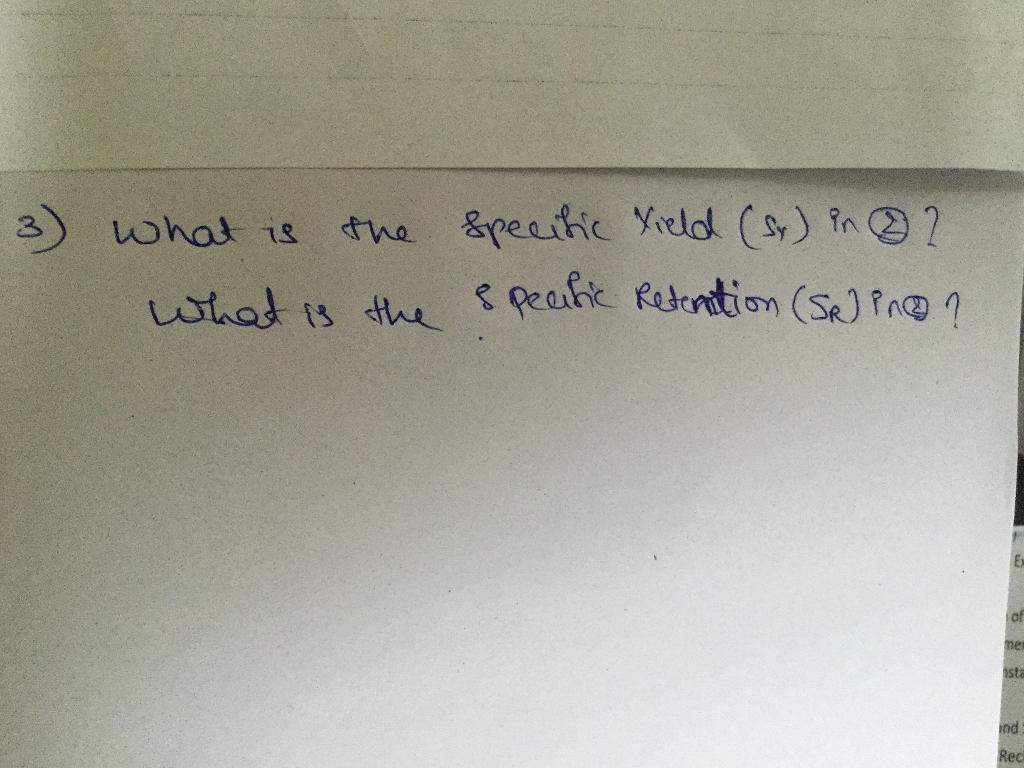 3) What is the Specific Yield (Sy) in ② ?
What is the Specific Retention (SR) in ② ?
Ex
of
mer
nsta
nd
Rec